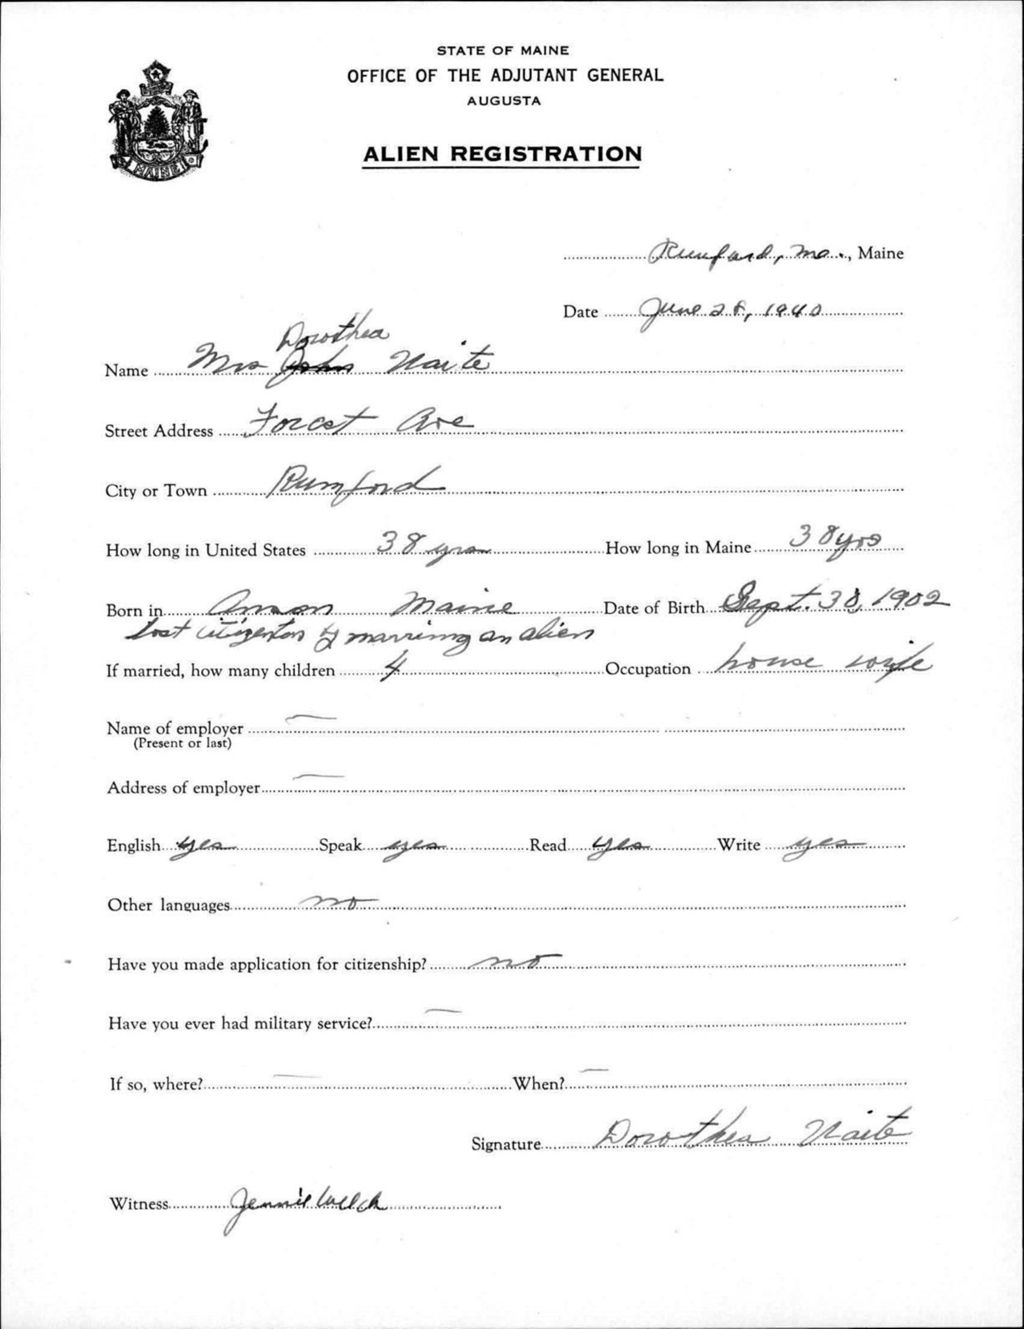 STATE OF MAINE
OFFICE OF THE ADJUTANT GENERAL
AUGUSTA
MAINE
ALIEN REGISTRATION
Rumford, Me., Maine
Date June 28, 1940
Dorothea
Name Mrs John Naite
Street Address Forest Ave
City or Town Rumford
How long in United States 38 yrs How long in Maine 38 yrs
Born in Anson Maine Date of Birth Sept. 30, 1902
Lost citizenton by marriing an alien
If married, how many children 4 Occupation house wife
Name of employer —
(Present or last)
Address of employer —
English yes Speak yes Read yes Write yes
Other languages no
Have you made application for citizenship? no
Have you ever had military service? —
If so, where? — When? —
Signature Dorothea Naite
Witness Jennie Welch